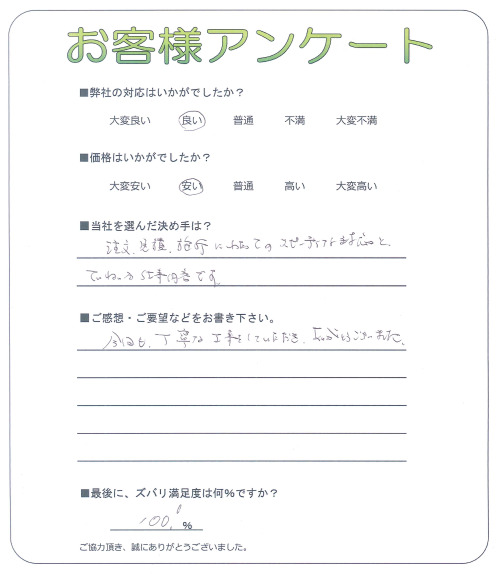 お客様アンケート
■弊社の対応はいかがでしたか？
大変良い 良い 普通 不満 大変不満
■価格はいかがでしたか？
大変安い 安い 普通 高い 大変高い
■当社を選んだ決め手は？
注文、見積、施行にあたってのスピーディな対応と、
ていねいな仕事内容です
■ご感想・ご要望などをお書き下さい。
今回も、丁寧な工事をしていただき、ありがとうございました。
■最後に、ズバリ満足度は何%ですか？
100 %
ご協力頂き、誠にありがとうございました。